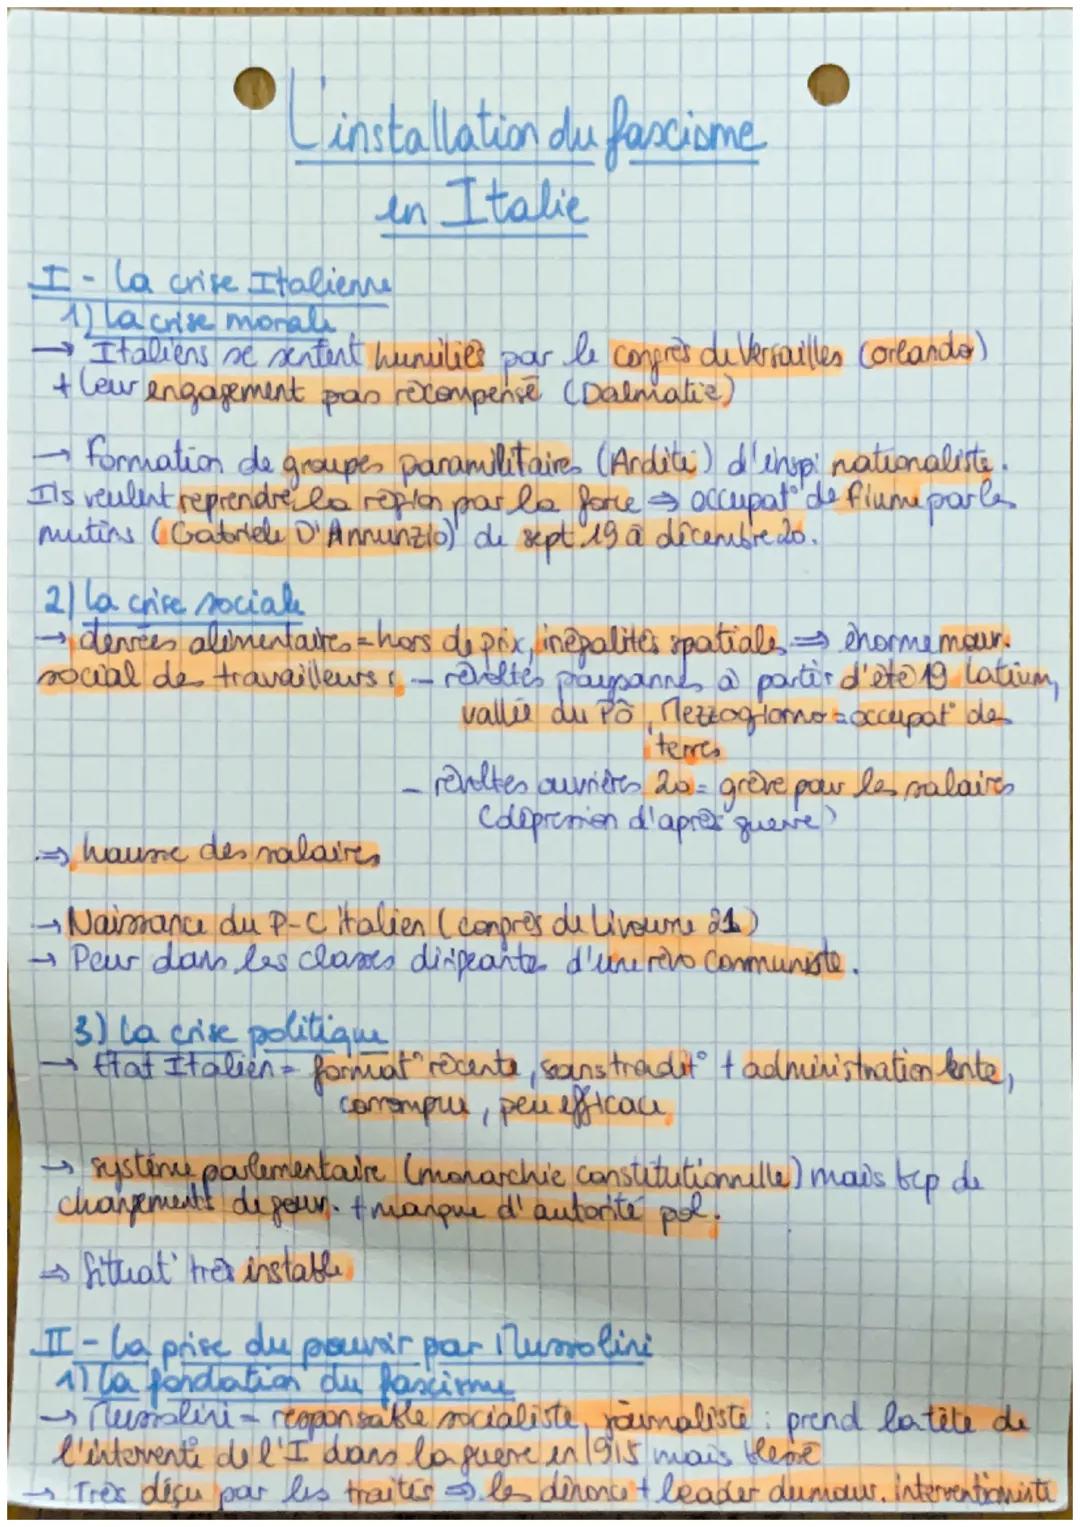 L'installation du fascisme
en Italie
I - La crise Italienne
1) La crise morale
→ Italiens se sentent humiliés par le congrès de Versailles (Orlando)
+ leur engagement pas récompensé (Dalmatie)
→ formation de groupes paramilitaires (Arditi) d'inspi nationaliste.
Ils veulent reprendre la région par la force ⇒ occupat° de fiume par les
mutins (Gabriele D'Annunzio) de sept 19 à décembre 20.
2) La crise sociale
→ denrées alimentaires = hors de prix, inégalités spatiales ⇒ énorme mouv.
social des travailleurs : - révoltes paysannes à partir d'été 19 Latium,
vallée du Pô, Mezzogiorno = occupat° de
terres
- révoltes ouvrières 20 = grève pour les salaires
(dépression d'après guerre)
⇒ hausse des salaires
→ Naissance du P-C italien (congrès de Livourne 21)
→ Peur dans les classes dirigeantes d'une révo communiste.
3) La crise politique
→ Etat Italien = format° récente, sans tradit° + administration lente,
corrompue, peu efficace
→ système parlementaire (monarchie constitutionnelle) mais bcp de
changements de gouv. + manque d'autorité pol.
⇒ Situat° très instable
II - La prise du pouvoir par Mussolini
1) La fondation du fascisme
→ Mussolini = responsable socialiste, journaliste : prend la tête de
l'interventi° de l'I dans la guerre en 1915 mais blessé
→ Très déçu par les traités ⇒ les dénonce + leader du mouv. interventionniste